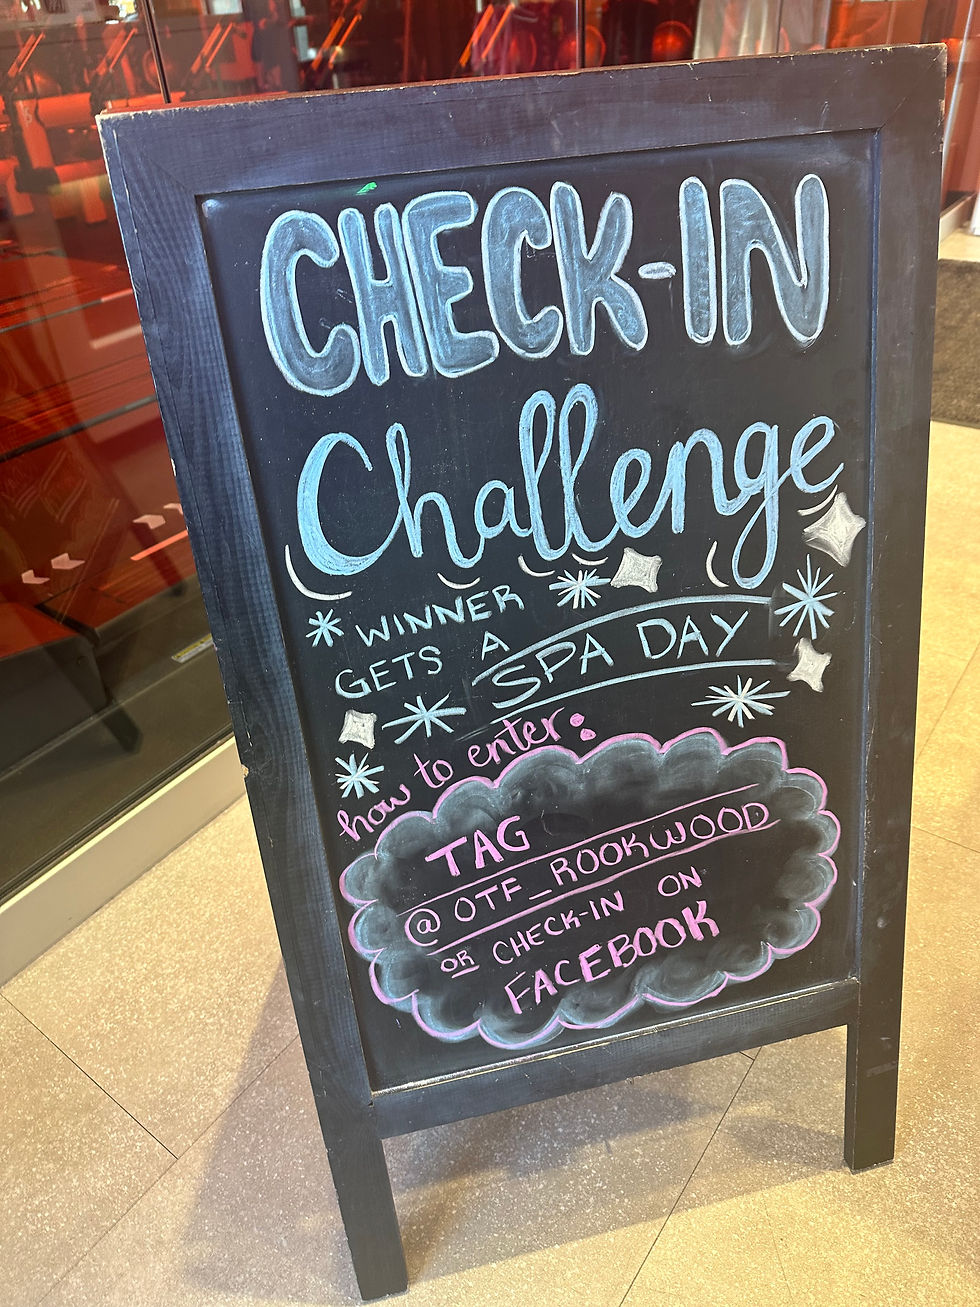 CHECK-IN
Challenge
WINNER
GETS A
SPA DAY
how to enter:
TAG
@OTF_ROOKWOOD
OR CHECK-IN ON
FACEBOOK